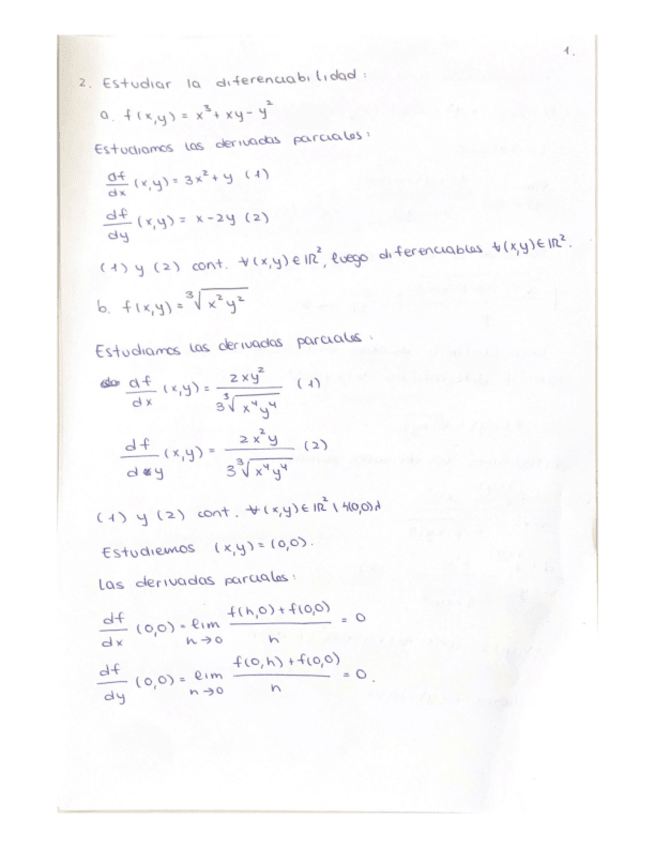 1.
2. Estudiar la diferenciabilidad:
a. f(x,y) = x³ + xy - y²
Estudiamos las derivadas parciales:
df/dx (x,y) = 3x² + y (1)
df/dy (x,y) = x - 2y (2)
(1) y (2) cont. ∀(x,y) ∈ ℝ², luego diferenciables ∀(x,y) ∈ ℝ².
b. f(x,y) = ³√(x²y²)
Estudiamos las derivadas parciales:
df/dx (x,y) = 2xy² / 3³√(x⁴y⁴) (1)
df/dy (x,y) = 2x²y / 3³√(x⁴y⁴) (2)
(1) y (2) cont. ∀(x,y) ∈ ℝ² \ {(0,0)}
Estudiemos (x,y) = (0,0).
Las derivadas parciales:
df/dx (0,0) = lim h→0 f(h,0) + f(0,0) / h = 0
df/dy (0,0) = lim h→0 f(0,h) + f(0,0) / h = 0.